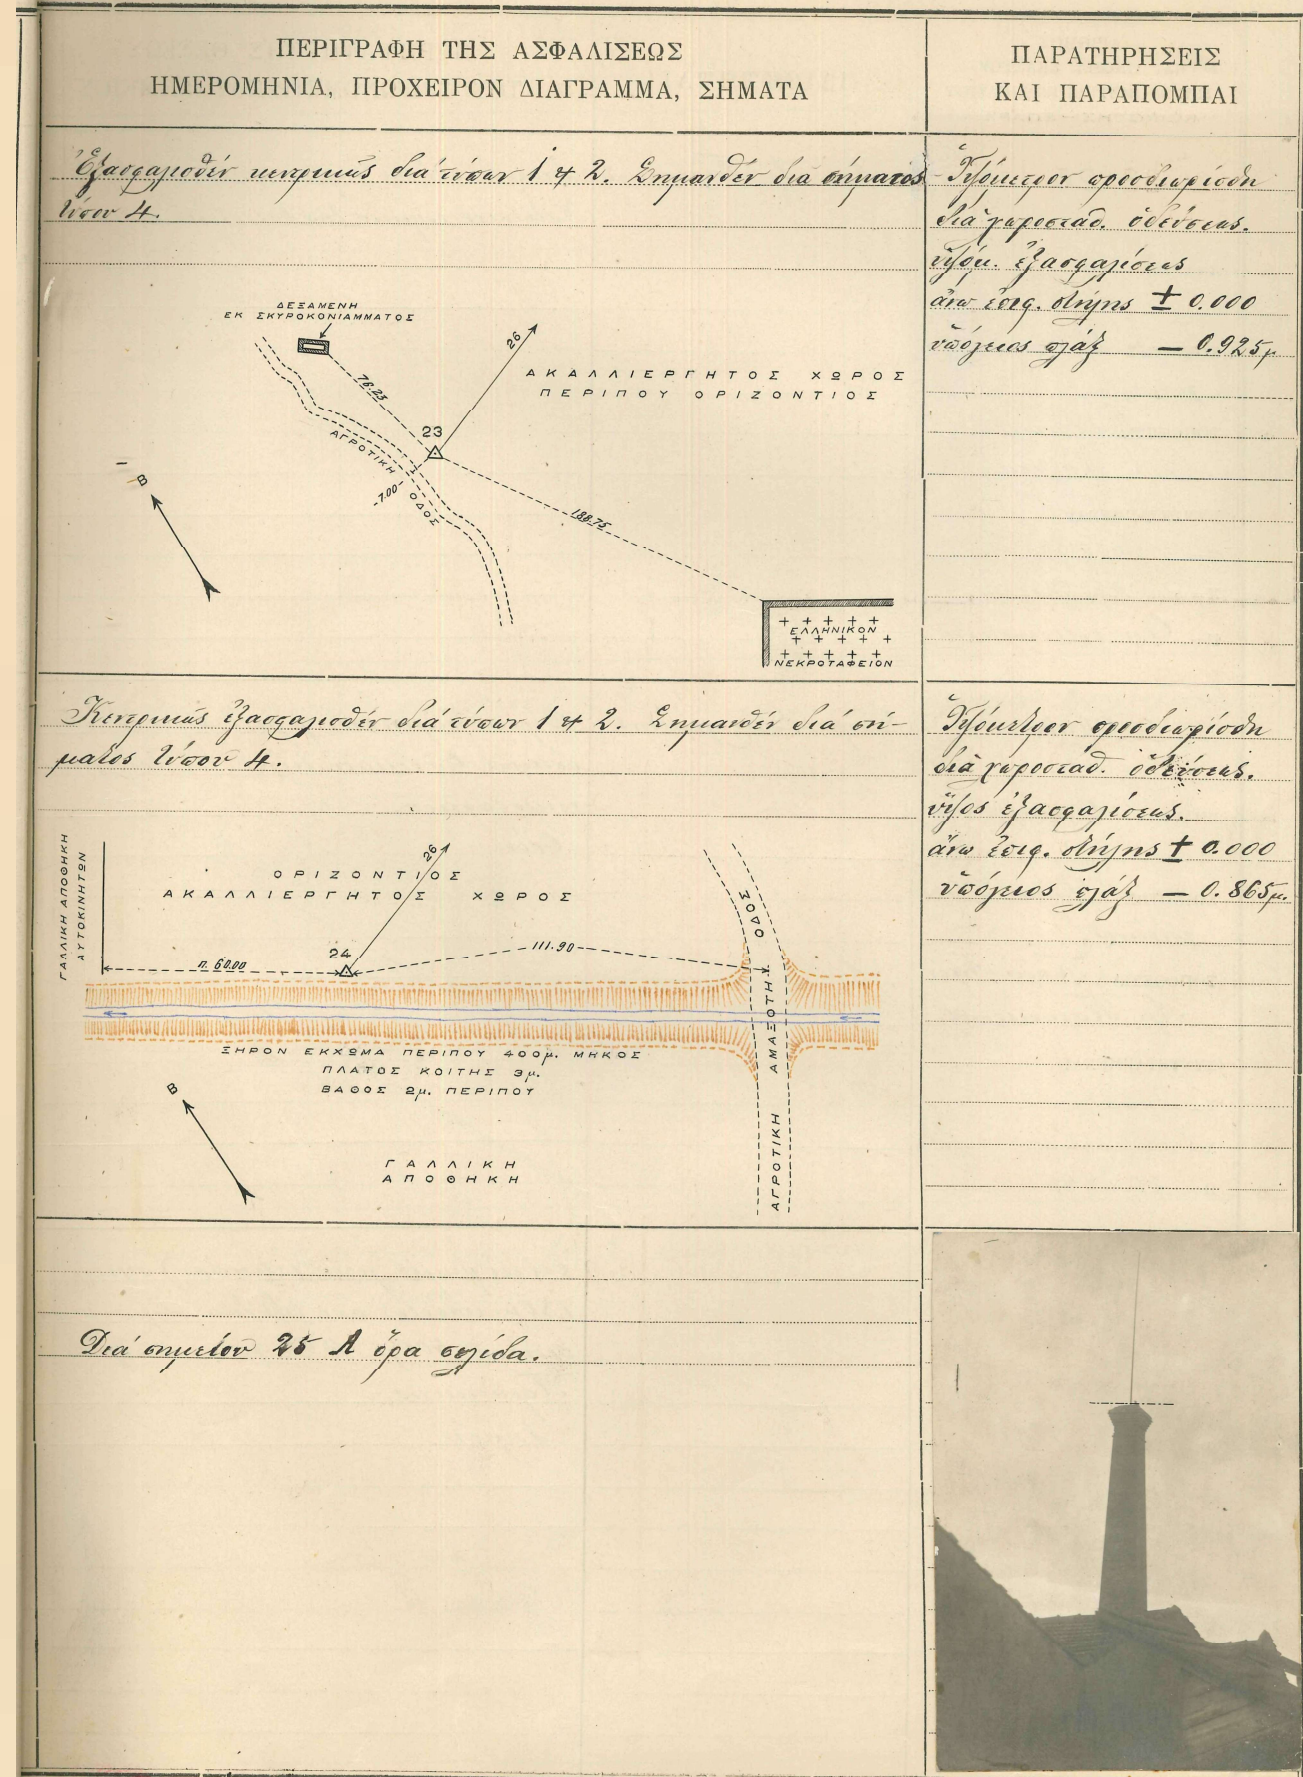 ΠΕΡΙΓΡΑΦΗ ΤΗΣ ΑΣΦΑΛΙΣΕΩΣ
ΗΜΕΡΟΜΗΝΙΑ, ΠΡΟΧΕΙΡΟΝ ΔΙΑΓΡΑΜΜΑ, ΣΗΜΑΤΑ
ΠΑΡΑΤΗΡΗΣΕΙΣ
ΚΑΙ ΠΑΡΑΠΟΜΠΑΙ
Ἐξασφαλισθέν κεντρικῶς διά τύπων 1 & 2. Σημανθέν διά σήματος
τύπου 4.
Ὑψόμετρον προσδιωρίσθη
διά χωροσταθ. ὁδεύσεως.
ὑψόμ. ἐξασφαλίσεως
ἄνω ἐπιφ. στήλης ± 0.000
ὑπόγειος πλάξ — 0.925μ
ΔΕΞΑΜΕΝΗ
ΕΚ ΣΚΥΡΟΚΟΝΙΑΜΜΑΤΟΣ
26
76.23
ΑΚΑΛΛΙΕΡΓΗΤΟΣ ΧΩΡΟΣ
ΠΕΡΙΠΟΥ ΟΡΙΖΟΝΤΙΟΣ
23
ΑΓΡΟΤΙΚΗ ΟΔΟΣ
-7.00-
Β
188.75
ΕΛΛΗΝΙΚΟΝ
ΝΕΚΡΟΤΑΦΕΙΟΝ
Κεντρικῶς ἐξασφαλισθέν διά τύπων 1 & 2. Σημανθέν διά σή-
ματος τύπου 4.
Ὑψόμετρον προσδιωρίσθη
διά χωροσταθ. ὁδεύσεως.
ὕψος ἐξασφαλίσεως.
ἄνω ἐπιφ. στήλης ± 0.000
ὑπόγειος πλάξ — 0.865μ.
ΓΑΛΛΙΚΗ ΑΠΟΘΗΚΗ
ΑΥΤΟΚΙΝΗΤΩΝ
26
ΟΡΙΖΟΝΤΙΟΣ
ΑΚΑΛΛΙΕΡΓΗΤΟΣ ΧΩΡΟΣ
24
π. 60.00
111.90
ΑΓΡΟΤΙΚΗ ΑΜΑΞΟΤΗ.Υ. ΟΔΟΣ
ΞΗΡΟΝ ΕΚΧΩΜΑ ΠΕΡΙΠΟΥ 400μ. ΜΗΚΟΣ
ΠΛΑΤΟΣ ΚΟΙΤΗΣ 3μ.
ΒΑΘΟΣ 2μ. ΠΕΡΙΠΟΥ
Β
ΓΑΛΛΙΚΗ
ΑΠΟΘΗΚΗ
Διά σημείον 25 Α ὅρα σελίδα.